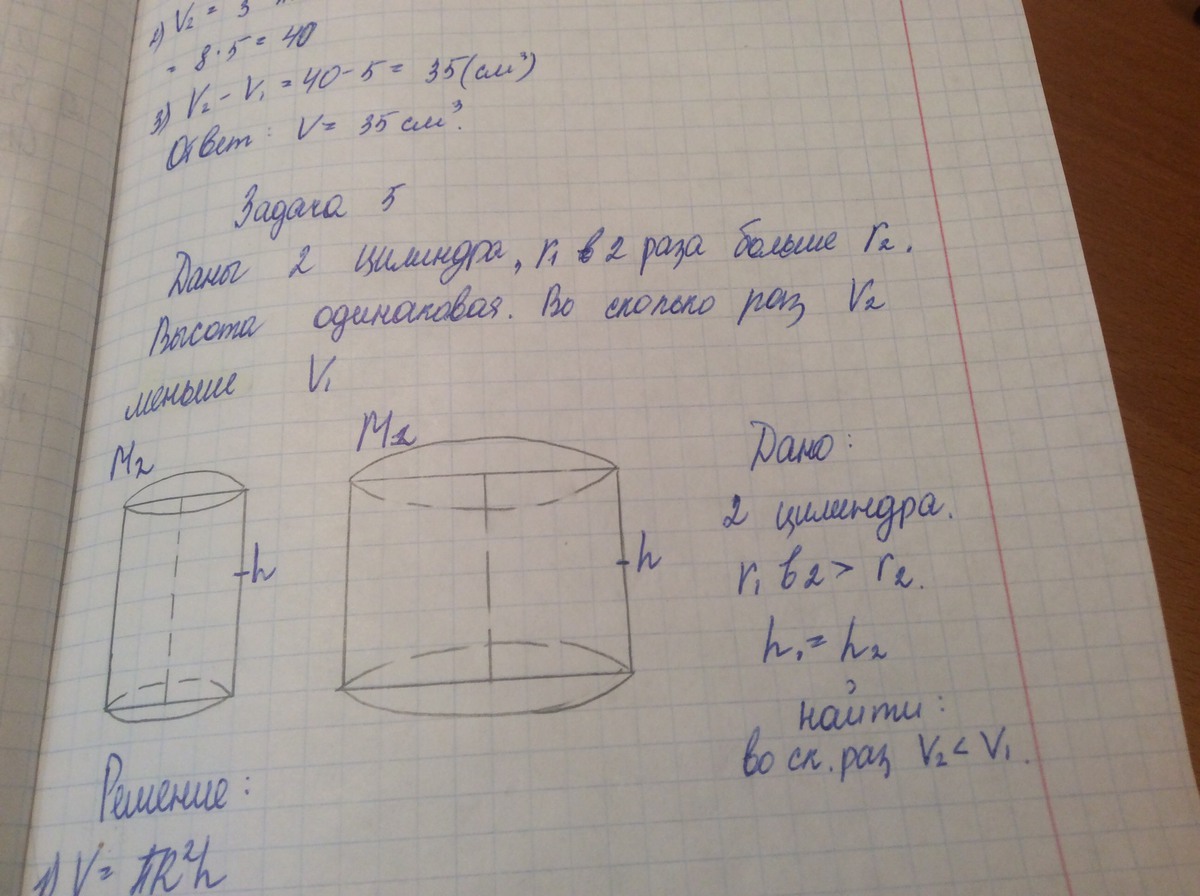 2) V₂ = 3
= 8·5 = 40
3) V₂ - V₁ = 40 - 5 = 35(см³)
Ответ: V = 35 см³.
Задача 5
Даны 2 цилиндра, r₁ в 2 раза больше r₂.
Высота одинаковая. Во сколько раз V₂
меньше V₁
M₂
M₂
h
h
Дано:
2 цилиндра.
r₁ в 2 > r₂.
h₁ = h₂
найти:
во ск. раз V₂ < V₁.
Решение:
1) V = πR²h